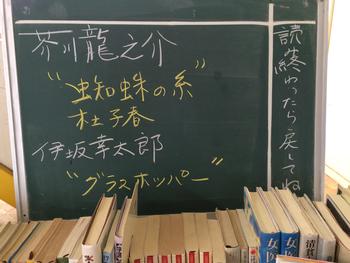 芥川龍之介
"蜘蛛の糸"
杜子春
伊坂幸太郎
"グラスホッパー"
読終わったら戻してね
女医
女医